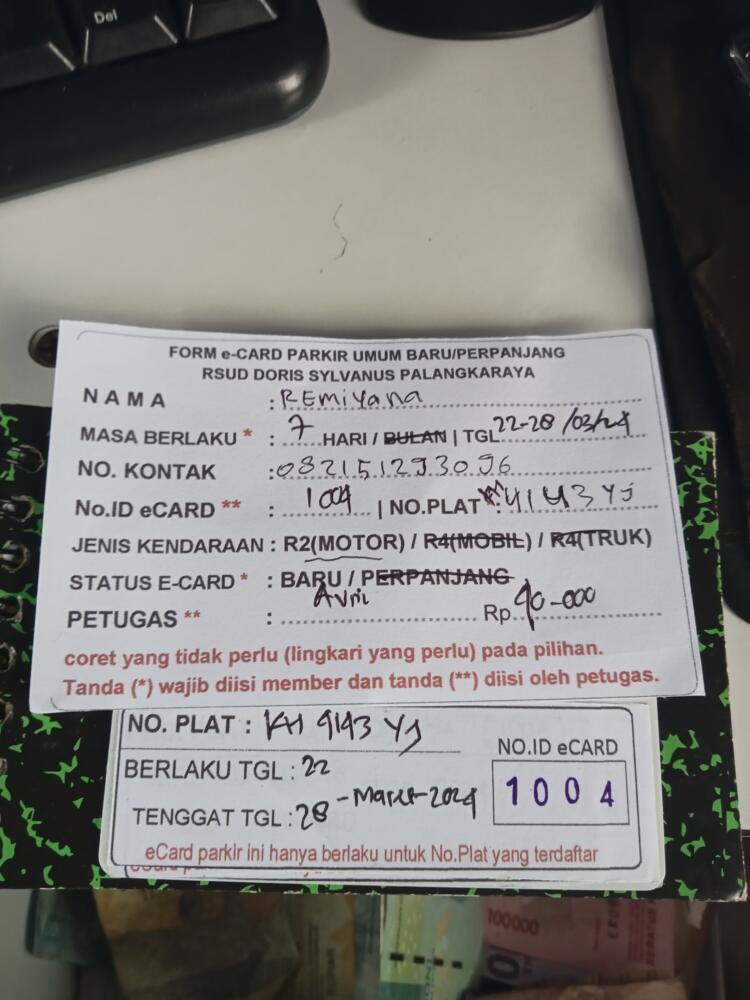 Del
FORM e-CARD PARKIR UMUM BARU/PERPANJANG
RSUD DORIS SYLVANUS PALANGKARAYA
NAMA : REMiYana
MASA BERLAKU * : 7 HARI / BULAN | TGL 22-28 /03/24
NO. KONTAK : 082151293096
No.ID eCARD ** : 1004 | NO.PLAT : KH 4143 YJ
JENIS KENDARAAN : R2(MOTOR) / R4(MOBIL) / R4(TRUK)
STATUS E-CARD * : BARU / PERPANJANG
PETUGAS ** : Avril Rp. 90-000
coret yang tidak perlu (lingkari yang perlu) pada pilihan.
Tanda (*) wajib diisi member dan tanda (**) diisi oleh petugas.
NO. PLAT : KH 9143 YJ
BERLAKU TGL : 22
TENGGAT TGL : 28 -Maret-2024
NO.ID eCARD
1004
eCard parkir ini hanya berlaku untuk No.Plat yang terdaftar
100000